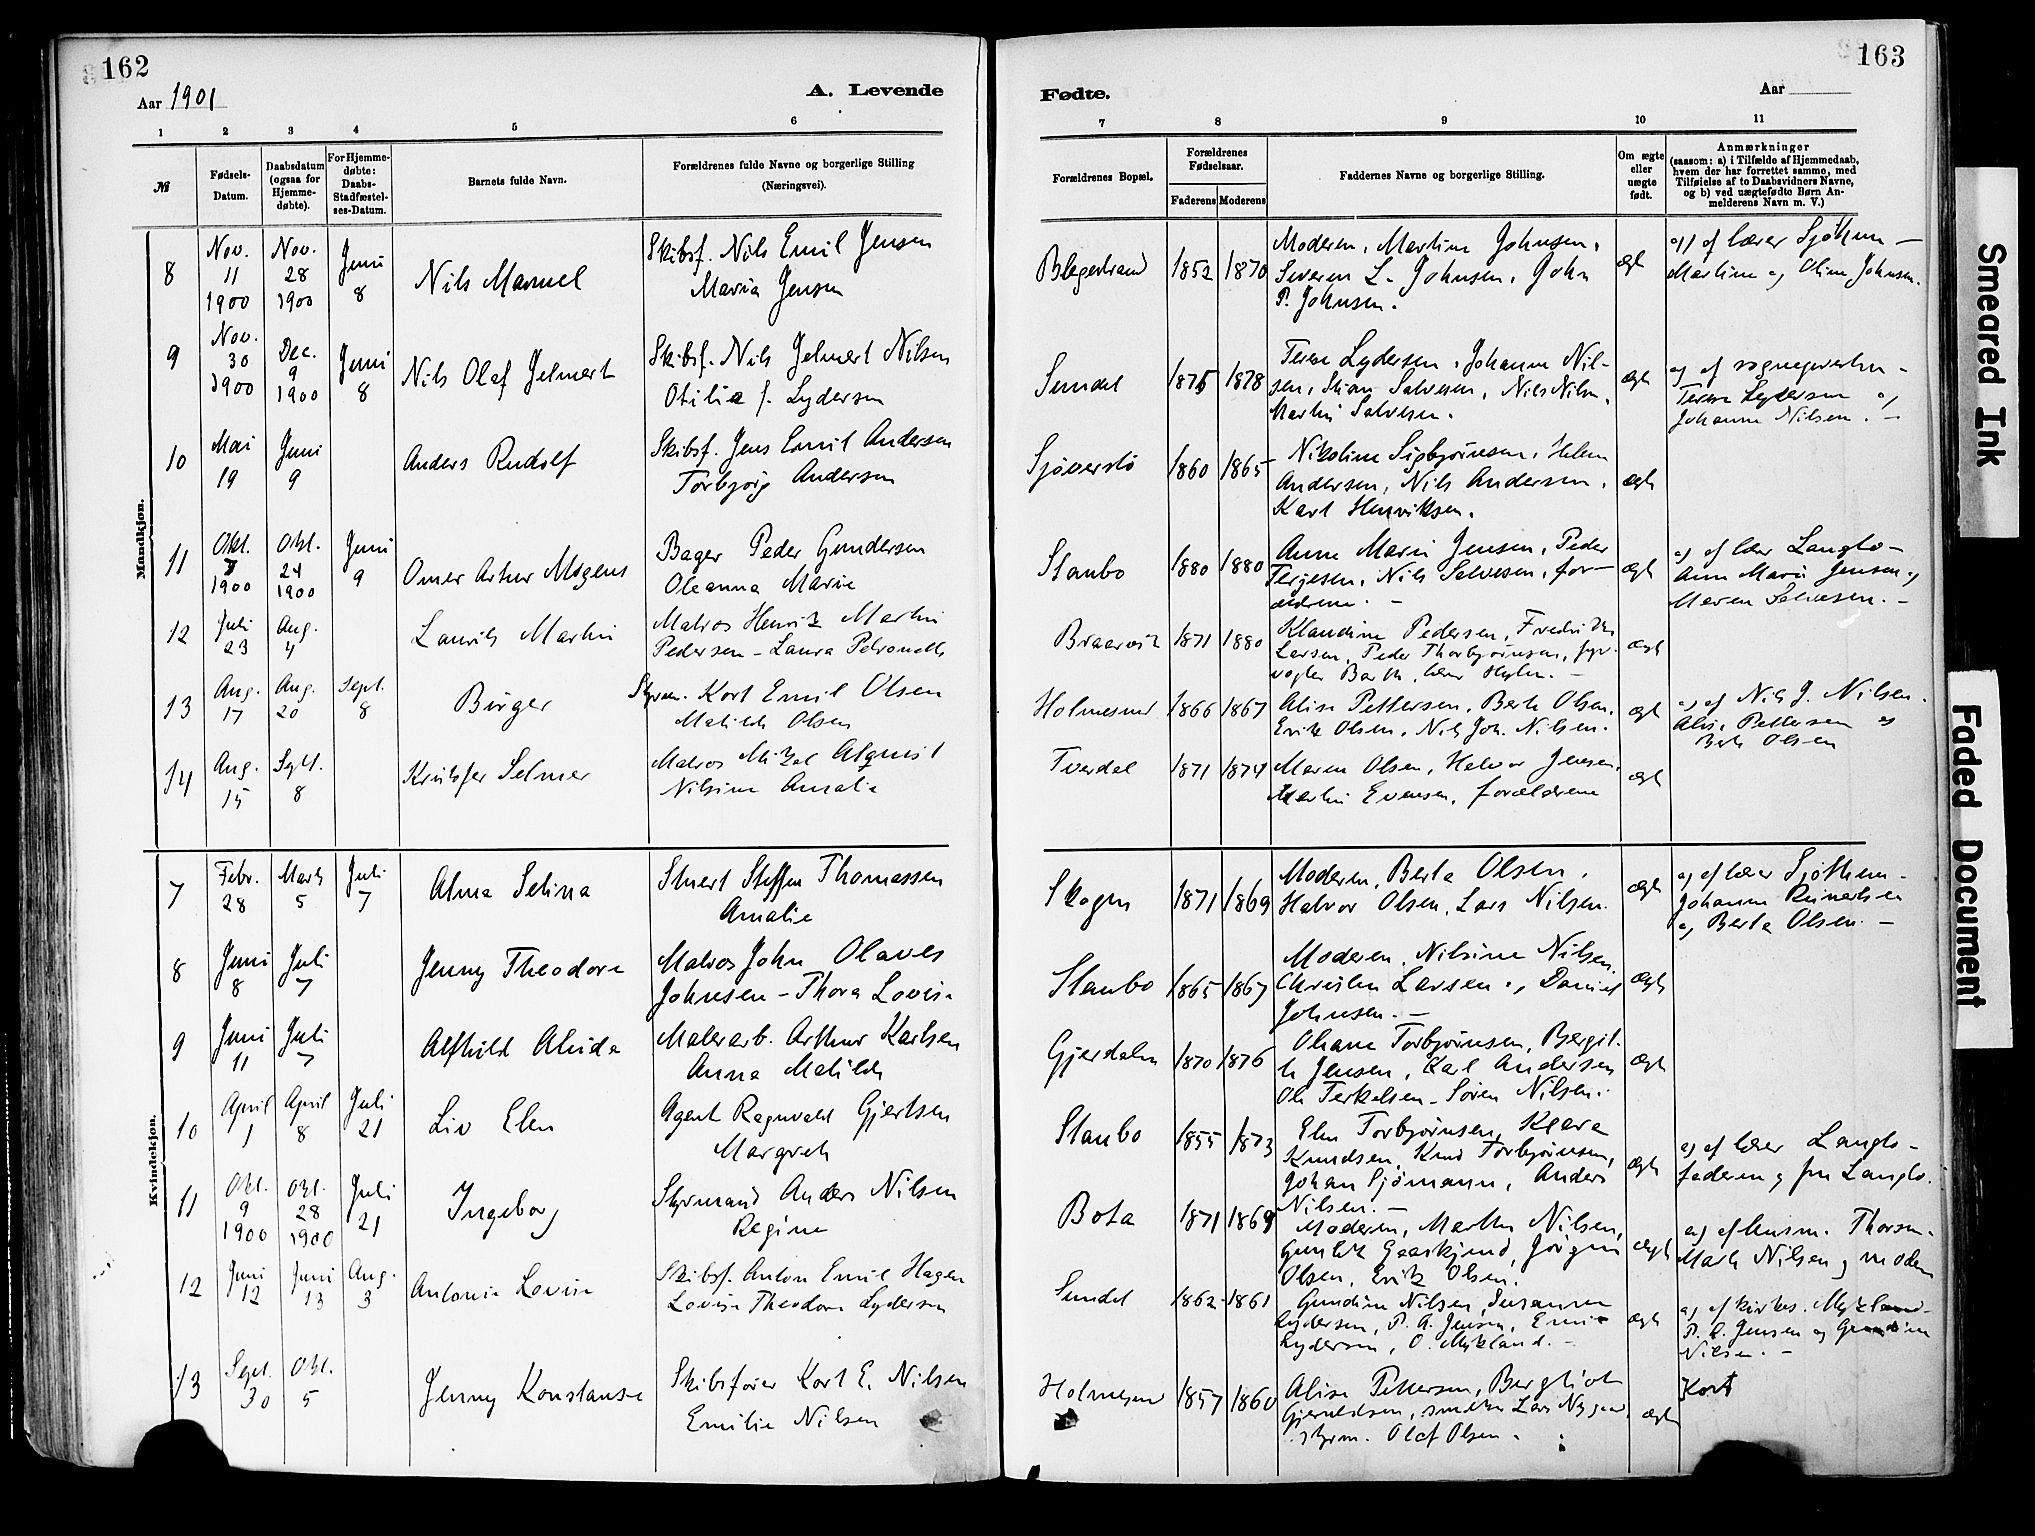 162
Aar 1901
A. Levende
1 2 3 4 5 6
№
Fødsels-
Datum.
Daabsdatum
(ogsaa for
Hjemme-
døbte).
For Hjemme-
døbte:
Daabs-
Stadfæstel-
ses-Datum.
Barnets fulde Navn.
Forældrenes fulde Navne og borgerlige Stilling
(Næringsvei).
Mandkjøn.
8 Nov. 11 1900 Nov. 28 1900 Juni 8 Nils Manuel
Skibsf. Nils Emil Jensen
Maria Jensen
9 Nov. 30 1900 Dec. 9 1900 Juni 8 Nils Olaf Jelmert
Skibsf. Nils Jelmert Nilsen
Otilie f. Lydersen
10 Mai 19 Juni 9 Anders Rudolf
Skibsf. Jens Emil Andersen
Torbjørg Andersen
11 Okt. 1900 Okt. 24 1900 Juni 9 Omer Artur Mogens
Bager Peder Gundersen
Oleanna Marie
12 Juli 23 Aug. 4 Laurits Martin
Matros Henrik Martin
Pedersen - Laura Petronelle
13 Aug. 17 Aug. 20 Sept. 8 Birger
Styrm. Kort Emil Olsen
Matilde Olsen
14 Aug. 15 Sept. 8 Kristofer Selmer
Matros Mikal Alquist
Nilsine Amalie
Kvindekjøn.
7 Febr. 28 Marts 5 Juli 7 Alma Selina
Stuert Steffen Thomassen
Amalie
8 Juni 8 Juli 7 Jenny Theodora
Matros John Olaves
Johnsen - Thora Lovise
9 Juni 11 Juli 7 Alfhild Alida
Malerarb. Arthur Karlsen
Anna Matilde
10 April 1 April 8 Juli 21 Liv Elen
Agent Ragnvald Gjertsen
Margrete
11 Okt. 9 1900 Okt. 28 1900 Juli 21 Ingeborg
Styrmand Anders Nilsen
Regine
12 Juni 12 Juni 13 Aug. 3 Antonie Lovise
Skibsf. Anton Emil Hagen
Lovise Theodora Lydersen
13 Sept. 30 Okt. 5 Jenny Konstanse
Skibsfører Kort E. Nilsen
Emilie Nilsen
163
Fødte.
Aar
7 8 9 10 11
Forældrenes Bopæl.
Forældrenes
Fødselsaar.
Faderens Moderens
Faddernes Navne og borgerlige Stilling.
Om ægte
eller
uægte
født.
Anmærkninger
(saasom: a) i Tilfælde af Hjemmedaab,
hvem der har forrettet samme, med
Tilføielse af to Daabsvidners Navne,
og b) ved uægtefødte Børn An-
melderens Navn m. V.)
1852 1870 Moderen, Martine Johnsen,
Severin L. Johnsen, John
P. Johnsen.
ægte
a) af lærer Sjøthun -
Martine og Oline Johnsen.
Sundet 1875 1878 Terese Lydersen, Johanne Nil-
sen, Stian Salvesen, Nils Nilsen,
Martin Salvesen.
ægte
a) af
Terese Lydersen og
Johanne Nilsen. -
Sjøverstø 1860 1865 Nikoline Sigbjørnsen, Helene
Andersen, Nils Andersen,
Karl Henriksen.
ægte
Staubo 1880 1880 Anne Marie Jensen, Peder
Terjesen, Nils Salvesen, for-
ældrene. -
ægte
a) af lærer Langlo -
Anne Marie Jensen og
Maren Salvesen. -
Braarvik 1871 1880 Klaudine Pedersen,
Larsen, Peder Thorbjørnsen, fyr-
vogter
ægte
Holmesund 1866 1867 Alise Pettersen, Berte Olsen,
Erik Olsen, Nils Joh. Nilsen.
ægte
a) af Nils J. Nilsen.
Alise Pettersen og
Berte Olsen
Tverdal 1871 1874 Maren Olsen, Halvor Jensen,
Martin Evensen, forældrene
ægte
Skogen 1871 1869 Moderen, Berta Olsen,
Halvor Olsen, Lars Nilsen.
ægte
a) af lærer Sjøthun -
Johanne Reinertsen
og Berta Olsen. -
Staubo 1865 1867 Moderen, Nilsine Nilsen,
Christen Larsen og Daniel
Johnsen. -
ægte
Gjerdalen 1870 1876 Oliane Torbjørnsen, Bergit-
te Jensen, Karl Andersen
Ole Terkelsen - Søren Nilsen.
ægte
Staubo 1855 1873 Elen Torbjørnsen, Klara
Knudsen, Knud Torbjørnsen,
Johan Sjømann, Anders
Nilsen. -
ægte
a) af lærer Langlo -
faderen og fru Langlo.
Bota 1871 1869 Moderen, Marthe Nilsen,
Gunhild Jørgen
Olsen, Erik Olsen.
ægte
a) af husm. Thorsen -
Marthe Nilsen og moderen
Sundet 1862 1861 Gundine Nilsen, Susanne
Lydersen, P. A. Jensen, Emil
Lydersen, O. Mykland. -
ægte
a) af kirkes. Mykland -
P. A. Jensen og Gundine
Nilsen. -
Holmesund 1857 1860 Alise Pettersen, Bergliot
Gjeruldsen, Lars Nygaard,
styrm. Olaf Olsen.
ægte
Kort
Smeared Ink
Faded Document